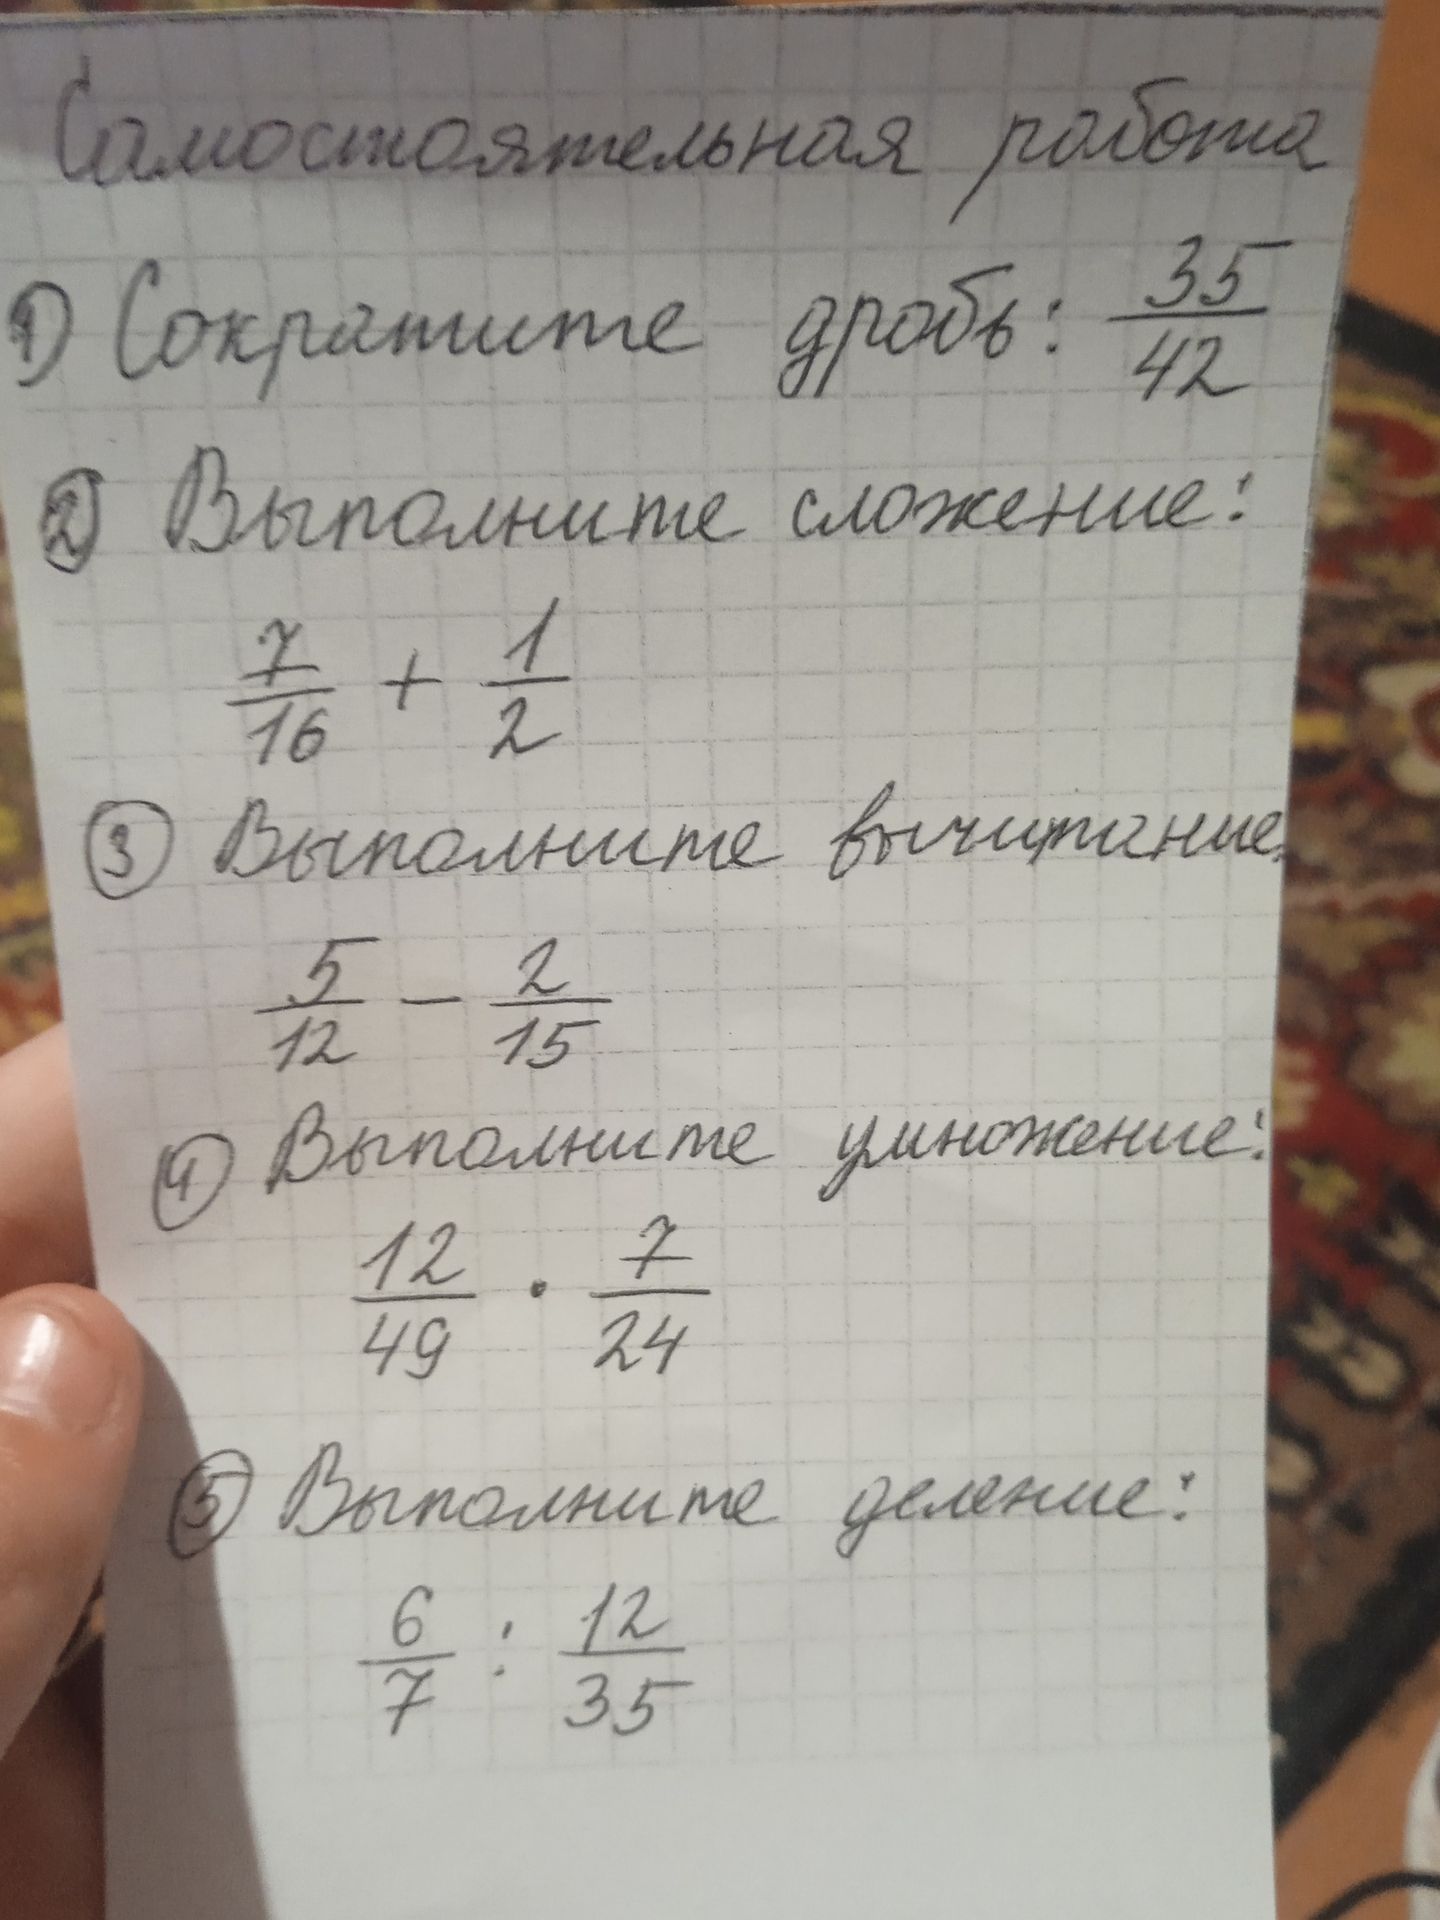 Самостоятельная работа
1) Сократите дробь: 35/42
2) Выполните сложение:
7/16 + 1/2
3 Выполните вычитание:
5/12 - 2/15
4 Выполните умножение:
12/49 · 7/24
5 Выполните деление:
6/7 : 12/35